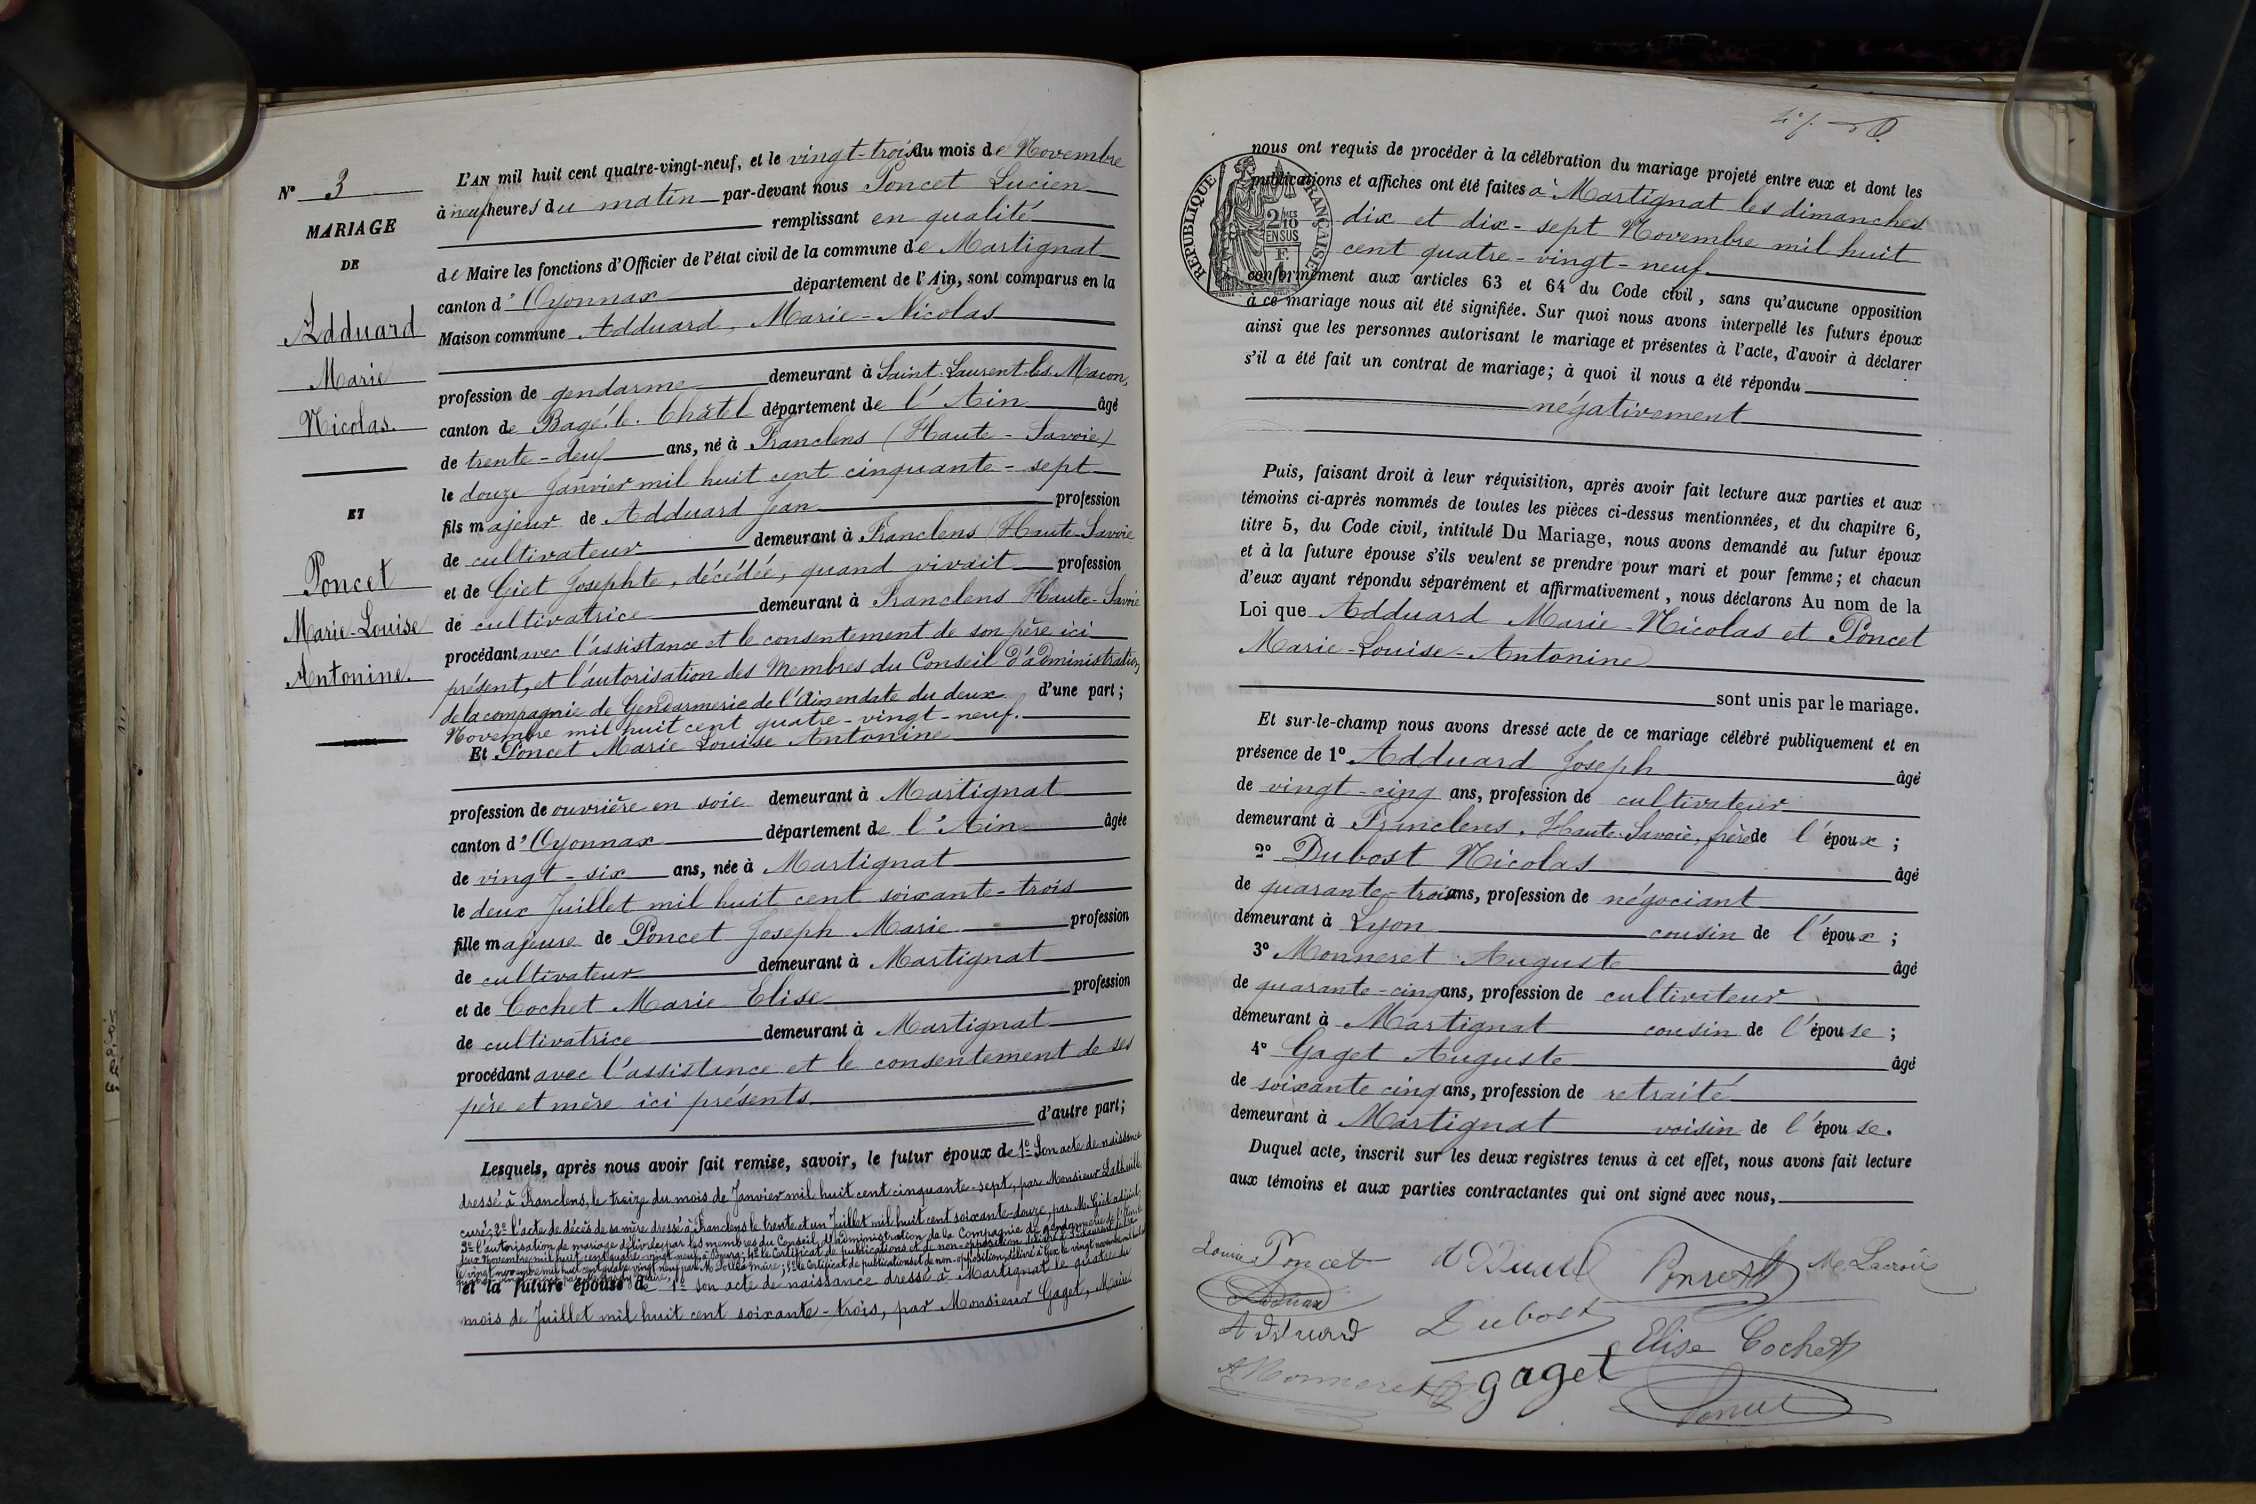 N° 3
MARIAGE
DE
Adduard
Marie
Nicolas.
ET
Poncet
Marie-Louise
Antonine.
L'AN mil huit cent quatre-vingt-neuf, et le vingt-trois du mois de Novembre
à neuf heures du matin par-devant nous Poncet Lucien
remplissant en qualité
de Maire les fonctions d'Officier de l'état civil de la commune de Martignat
canton d'Oyonnax département de l'Ain, sont comparus en la
Maison commune Adduard, Marie-Nicolas
profession de gendarme demeurant à Saint-Laurent-les-Macon,
canton de Bagé-le-Châtel département de l'Ain âgé
de trente-deux ans, né à Franclens (Haute-Savoie)
le douze Janvier mil huit cent cinquante-sept
fils majeur de Adduard Jean profession
de cultivateur demeurant à Franclens (Haute-Savoie
et de Giet Josephte, décédée, quand vivait profession
de cultivatrice demeurant à Franclens Haute-Savoie
procédant avec l'assistance et le consentement de son père ici
présent, et l'autorisation des Membres du Conseil d'administration
de la compagnie de Gendarmerie de l'Ain en date du deux d'une part;
Novembre mil huit cent quatre-vingt-neuf.
Et Poncet Marie Louise Antonine
profession de ouvrière en soie demeurant à Martignat
canton d'Oyonnax département de l'Ain âgée
de vingt-six ans, née à Martignat
le deux Juillet mil huit cent soixante-trois
fille majeure de Poncet Joseph Marie profession
de cultivateur demeurant à Martignat
et de Cochet Marie Elise profession
de cultivatrice demeurant à Martignat
procédant avec l'assistance et le consentement de ses
père et mère ici présents.
d'autre part;
Lesquels, après nous avoir fait remise, savoir, le futur époux de 1° Son acte de naissance
dressé à Franclens, le treize du mois de Janvier mil huit cent cinquante-sept, par Monsieur
curé; 2° l'acte de décès de sa mère dressé à Franclens le trente et un Juillet mil huit cent soixante-douze, par M. Giet adjoint;
3° l'autorisation de mariage délivrée par les membres du Conseil d'administration de la Compagnie de gendarmerie de l'Ain le
deux Novembre mil huit cent quatre-vingt-neuf à Bourg; 4° le Certificat de publications et de non-opposition délivré à
le vingt novembre mil huit cent quatre vingt neuf par M. maire; 5° le Certificat de publications et de non-opposition délivré à le vingt novembre mil huit cent
et la future épouse de 1° son acte de naissance dressé à Martignat le quatre du
mois de Juillet mil huit cent soixante-trois, par Monsieur Gaget, Maire
nous ont requis de procéder à la célébration du mariage projeté entre eux et dont les
publications et affiches ont été faites à Martignat les dimanches
dix et dix-sept Novembre mil huit
cent quatre-vingt-neuf.
RÉPUBLIQUE FRANÇAISE
2/10
EN SUS
conformément aux articles 63 et 64 du Code civil, sans qu'aucune opposition
à ce mariage nous ait été signifiée. Sur quoi nous avons interpellé les futurs époux
ainsi que les personnes autorisant le mariage et présentes à l'acte, d'avoir à déclarer
s'il a été fait un contrat de mariage; à quoi il nous a été répondu
négativement
Puis, faisant droit à leur réquisition, après avoir fait lecture aux parties et aux
témoins ci-après nommés de toutes les pièces ci-dessus mentionnées, et du chapitre 6,
titre 5, du Code civil, intitulé Du Mariage, nous avons demandé au futur époux
et à la future épouse s'ils veulent se prendre pour mari et pour femme; et chacun
d'eux ayant répondu séparément et affirmativement, nous déclarons Au nom de la
Loi que Adduard Marie-Nicolas et Poncet
Marie-Louise-Antonine
sont unis par le mariage.
Et sur-le-champ nous avons dressé acte de ce mariage célébré publiquement et en
présence de 1° Adduard Joseph âgé
de vingt-cinq ans, profession de cultivateur
demeurant à Franclens, Haute-Savoie, frère de l'époux;
2° Dubost Nicolas âgé
de quarante-trois ans, profession de négociant
demeurant à Lyon cousin de l'époux;
3° Monneret Auguste âgé
de quarante-cinq ans, profession de cultivateur
demeurant à Martignat cousin de l'épouse;
4° Gaget Auguste âgé
de soixante cinq ans, profession de retraité
demeurant à Martignat voisin de l'épouse.
Duquel acte, inscrit sur les deux registres tenus à cet effet, nous avons fait lecture
aux témoins et aux parties contractantes qui ont signé avec nous,
Louise Poncet Adduard Poncet Me Lacroix
Adduard
Adduard Dubost Elise Cochet
A Monneret gaget
Poncet